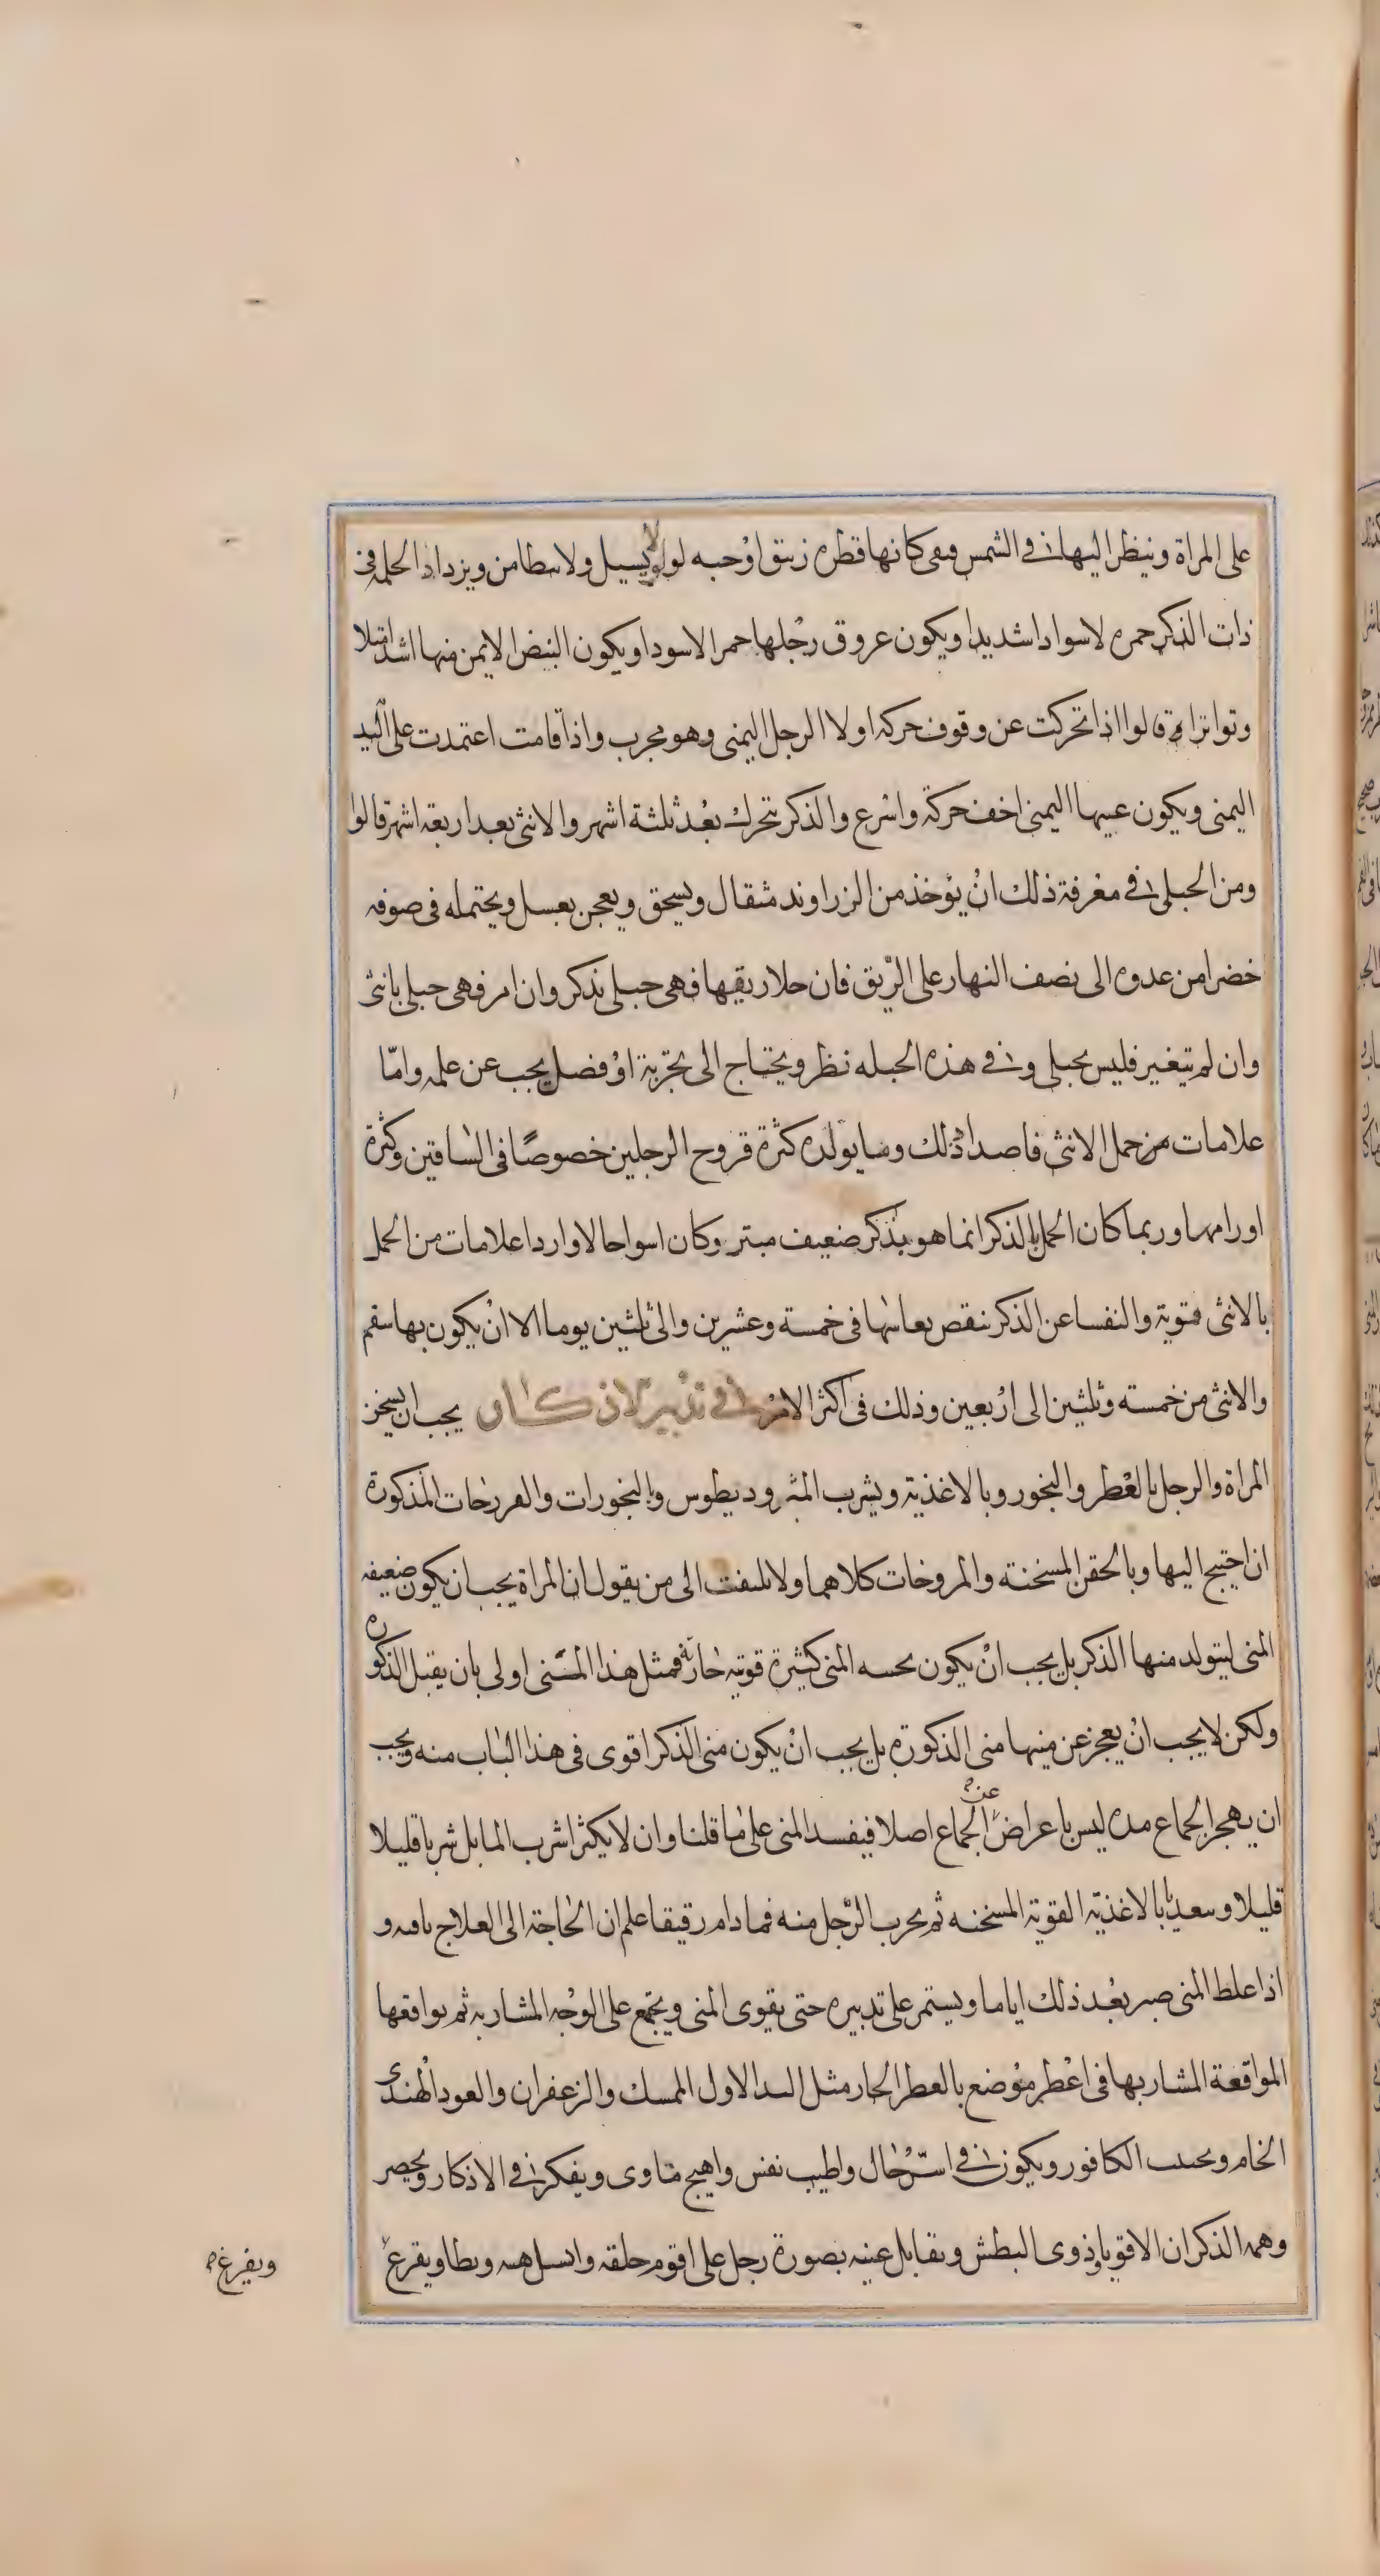 على المراة وينظر اليها في الشمس وهى كانها قطره زيبق او حبه لولو لا يسيل ولا سطامن ويزداد الحلمه فى
ذات الذكر حمره لاسوادا شديدا ويكون عروق رجلها حمرا لاسودا ويكون النبض الايمن منها اشد امتلا
وتواترا قالوا اذا تحركت عن وقوف حركه اولا الرجل اليمنى وهو مجرب واذا قامت اعتمدت على اليد
اليمنى ويكون عينها اليمنى اخف حركة واسرع والذكر يتحرك بعد ثلثة اشهر والانثى بعد اربعه اشهر قالوا
ومن الحبلى في معرفة ذلك ان يؤخذ من الزراوند مثقال ويسحق ويعجن بعسل ويحتمله فى صوفه
خضرا من عدوه الى نصف النهار على الريق فان حلا ريقها فهى حبلى بذكر وان امر فهى حبلى بانثى
وان لم يتغير فليس بحبلى وفي هذه الحيله نظر ويحتاج الى تجربة او فضل يجب عن علمه وامّا
علامات من حمل الانثى فاصداد ذلك ومما يولده كثرة قروح الرجلين خصوصًا فى الساقين وكثرة
اورامها وربما كان الحمل بالذكر انما هو بذكر ضعيف مبتر وكان اسوا حالا واردا علامات من الحمل
بالانثى قوية والنفسا عن الذكر ينقص نفاسها فى خمسة وعشرين والى ثلثين يوما الا ان يكون بها سقم
والانثى من خمسه وثلثين الى اربعين وذلك فى اكثر الامر في تدبير الاذكار يجب ان يسخن
المراة والرجل بالعطر والبخور وبالاغذية ويشرب المثروديطوس والبخورات والفرزجات المذكورة
ان احتيج اليها وبالحقن المسخنة والمروخات كلاهما ولا يلتفت الى من يقول ان المراة يجب ان يكون ضعيفه
المنى ليتولد منها الذكر بل يجب ان يكون محسه المنى كثيرة قويه حارة فمثل هذا المنى اولى بان يقبل الذكوره
ولكن لا يجب ان يعجز عن منيها منى الذكورة بل يجب ان يكون منى الذكر اقوى فى هذا الباب منه ويجب
ان يهجر الجماع مده ليس باعراض عن الجماع اصلا فيفسد المنى على ما قلنا وان لا يكثر اشرب الما بل شربا قليلا
قليلا وسعديا بالاغذية القوية المسخنه ثم يجرب الرجل منه فما دام رقيقا علم ان الحاجة الى العلاج باقيه و
اذا غلظ المنى صبر بعد ذلك اياما ويستمر على تدبيره حتى يقوى المنى ويجتمع على الوجه المشار به ثم يواقعها
المواقعة المشار بها فى اعطر موضع بالعطر الحار مثل الند الاول المسك والزعفران والعود الهندى
الخام ويجنب الكافور ويكون في اسرّ حال واطيب نفس واهيج ماوى ويفكر في الاذكار ويحضر
وهمه الذكران الاقويا وذوى البطش ويقابل عينه بصورة رجل على اقوم خلقه ويطاويفرغ
ويفرغ